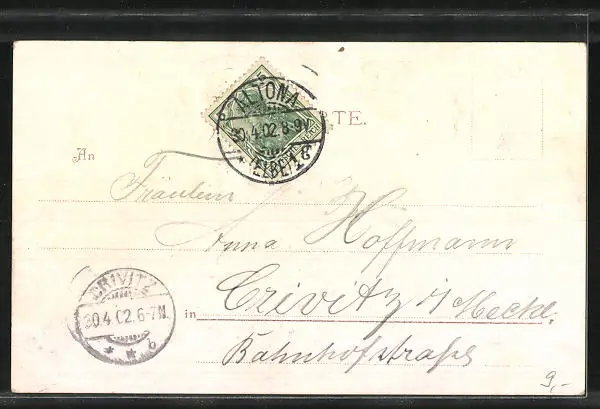 ALTONA
30.4.02.8-9V
(ELBE) 1 c
TE.
An
Fräulein
Anna Hoffmann
in Crivitz i/Meckl.
Bahnhofstraße
CRIVITZ
30.4.02.6-7N.
9,-